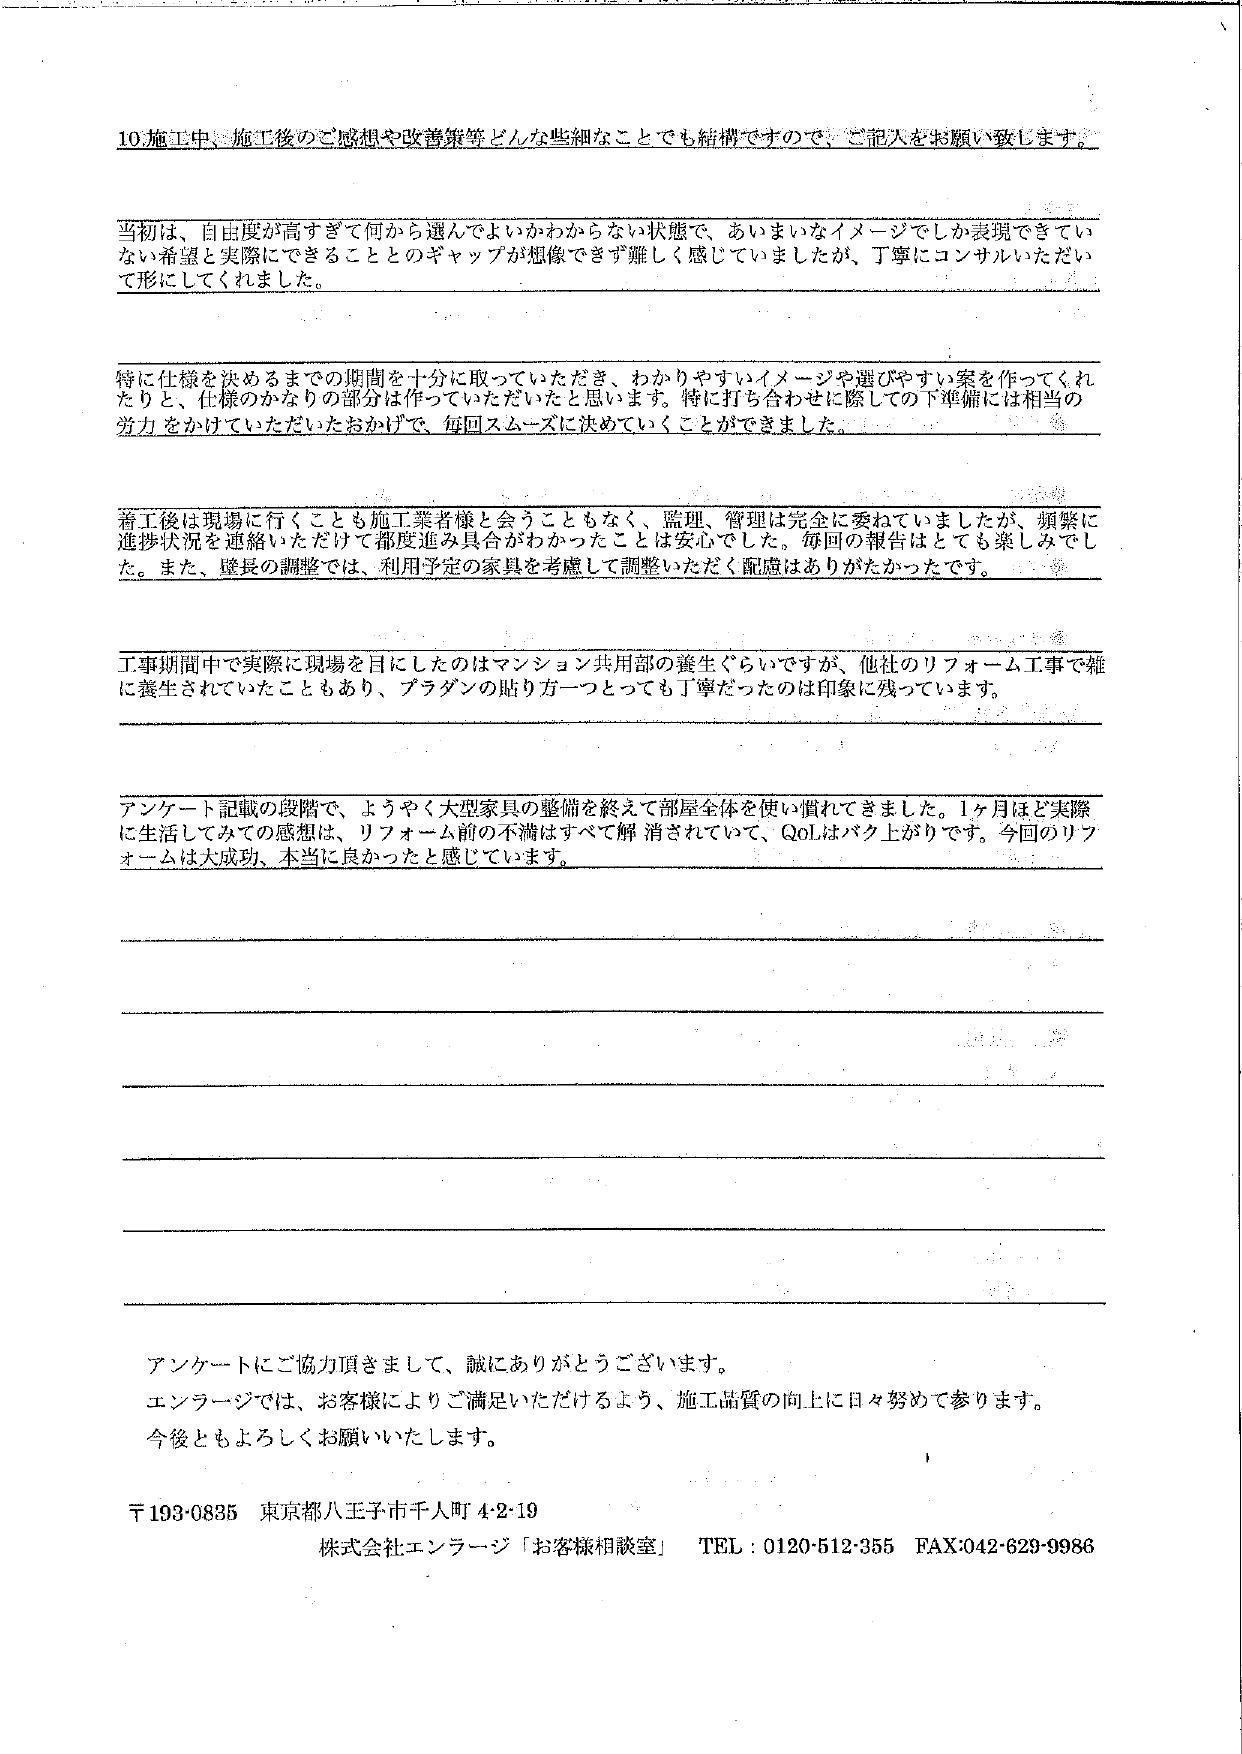 10.施工中、施工後のご感想や改善策等どんな些細なことでも結構ですので、ご記入をお願い致します。
当初は、自由度が高すぎて何から選んでよいかわからない状態で、あいまいなイメージでしか表現できてい
ない希望と実際にできることとのギャップが想像できず難しく感じていましたが、丁寧にコンサルいただい
て形にしてくれました。
特に仕様を決めるまでの期間を十分に取っていただき、わかりやすいイメージや選びやすい案を作ってくれ
たりと、仕様のかなりの部分は作っていただいたと思います。特に打ち合わせに際しての下準備には相当の
労力 をかけていただいたおかげで、毎回スムーズに決めていくことができました。
着工後は現場に行くことも施工業者様と会うこともなく、監理、管理は完全に委ねていましたが、頻繁に
進捗状況を連絡いただけて都度進み具合がわかったことは安心でした。毎回の報告はとても楽しみでし
た。また、壁長の調整では、利用予定の家具を考慮して調整いただく配慮はありがたかったです。
工事期間中で実際に現場を目にしたのはマンション共用部の養生ぐらいですが、他社のリフォーム工事で雑
に養生されていたこともあり、プラダンの貼り方一つとっても丁寧だったのは印象に残っています。
アンケート記載の段階で、ようやく大型家具の整備を終えて部屋全体を使い慣れてきました。1ヶ月ほど実際
に生活してみての感想は、リフォーム前の不満はすべて解 消されていて、QoLはバク上がりです。今回のリフ
ォームは大成功、本当に良かったと感じています。
アンケートにご協力頂きまして、誠にありがとうございます。
エンラージでは、お客様によりご満足いただけるよう、施工品質の向上に日々努めて参ります。
今後ともよろしくお願いいたします。
〒193-0835 東京都八王子市千人町 4-2-19
株式会社エンラージ「お客様相談室」 TEL:0120-512-355 FAX:042-629-9986